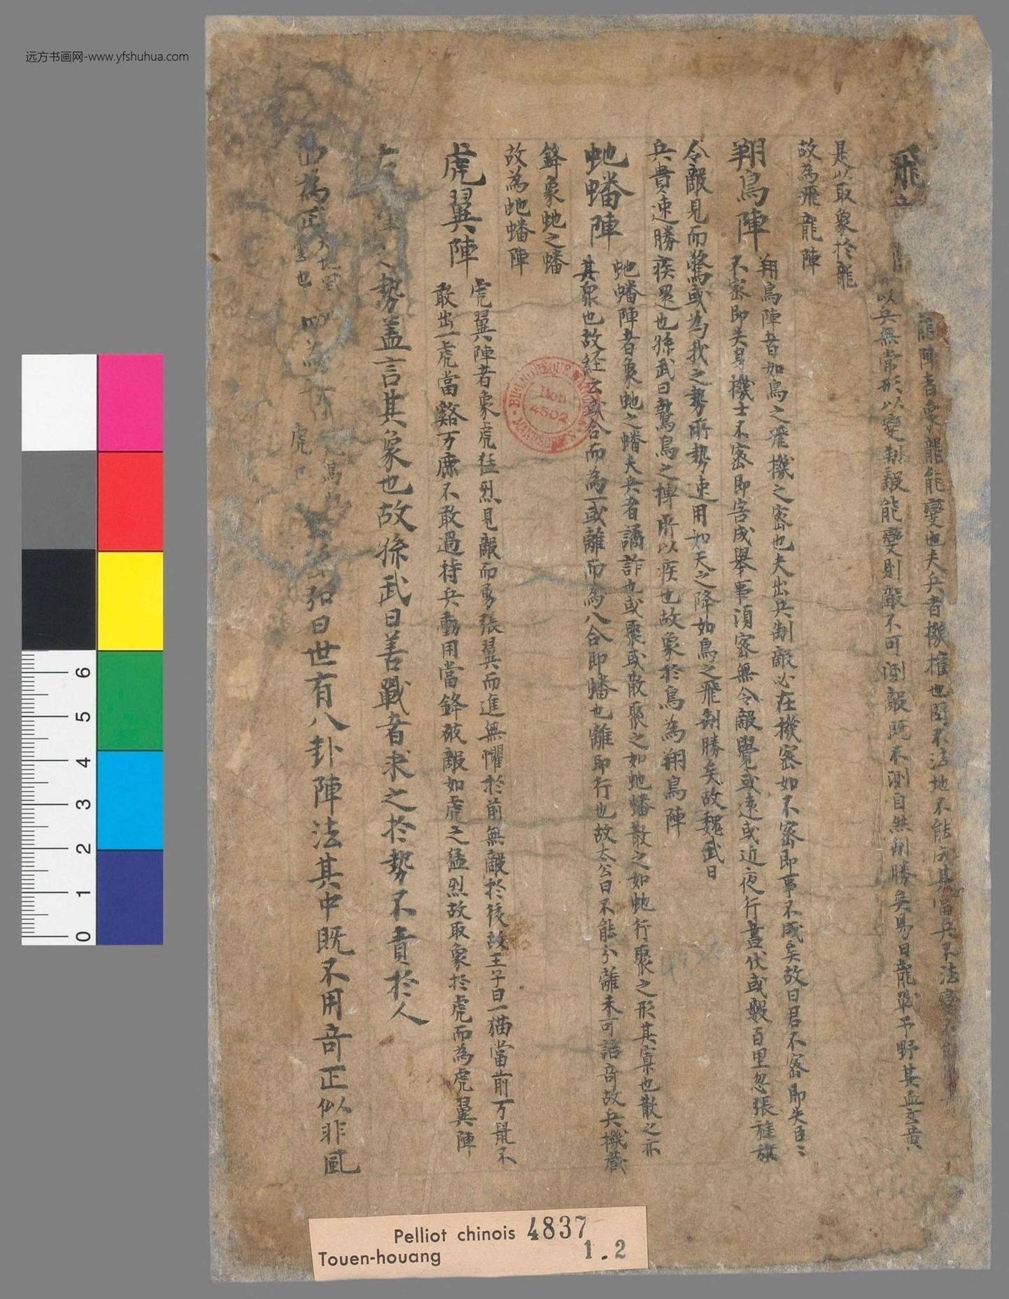 远方书画网-www.yfshuhua.com
飛
龍陣者象龍能變也夫兵者機權也因不法地不能
以兵無常形以變制敵能變則敵不可測敵既不測自然制勝矣易曰龍戰于野其血玄黄
是以取象於龍
故為飛龍陣
翔鳥陣
翔鳥陣者如鳥之飛機之密也夫出兵制敵必在機密如不密即事不成矣故曰君不密即失臣
不密即失身機士不密即害成舉事須密無令敵覺或遠或近夜行晝伏或襲百里忽張旌旗
令敵見而驚或為我之勢所勢速用如天之降如鳥之飛制勝矣故魏武曰
兵貴速勝疾還也孫武曰鷙鳥之搏所以疾也故象於鳥為翔鳥陣
虵蟠陣
虵蟠陣者象虵之蟠夫兵者譎詐也或聚或散聚之如虵蟠散之如虵行聚之形其寡也散之亦
其衆也故経云或合而為一或離而為八合即蟠也離即行也故太公曰不能分離未可語奇故兵機藏
鋒象虵之蟠
故為虵蟠陣
虎翼陣
虎翼陣者象虎猛烈見敵而勇張翼而進無懼於前無敵於後故王子曰一猫當前万鼠不
敢出一虎當谿万鹿不敢過持兵動用當鋒破敵如虎之猛烈故取象於虎而為虎翼陣
勢盖言其象也故孫武曰善戰者求之於勢不責於人
為正
也
四為
虎
曰世有八卦陣法其中既不用奇正似非風
Pelliot chinois 4837
Touen-houang 1.2
6
5
4
3
2
1
0